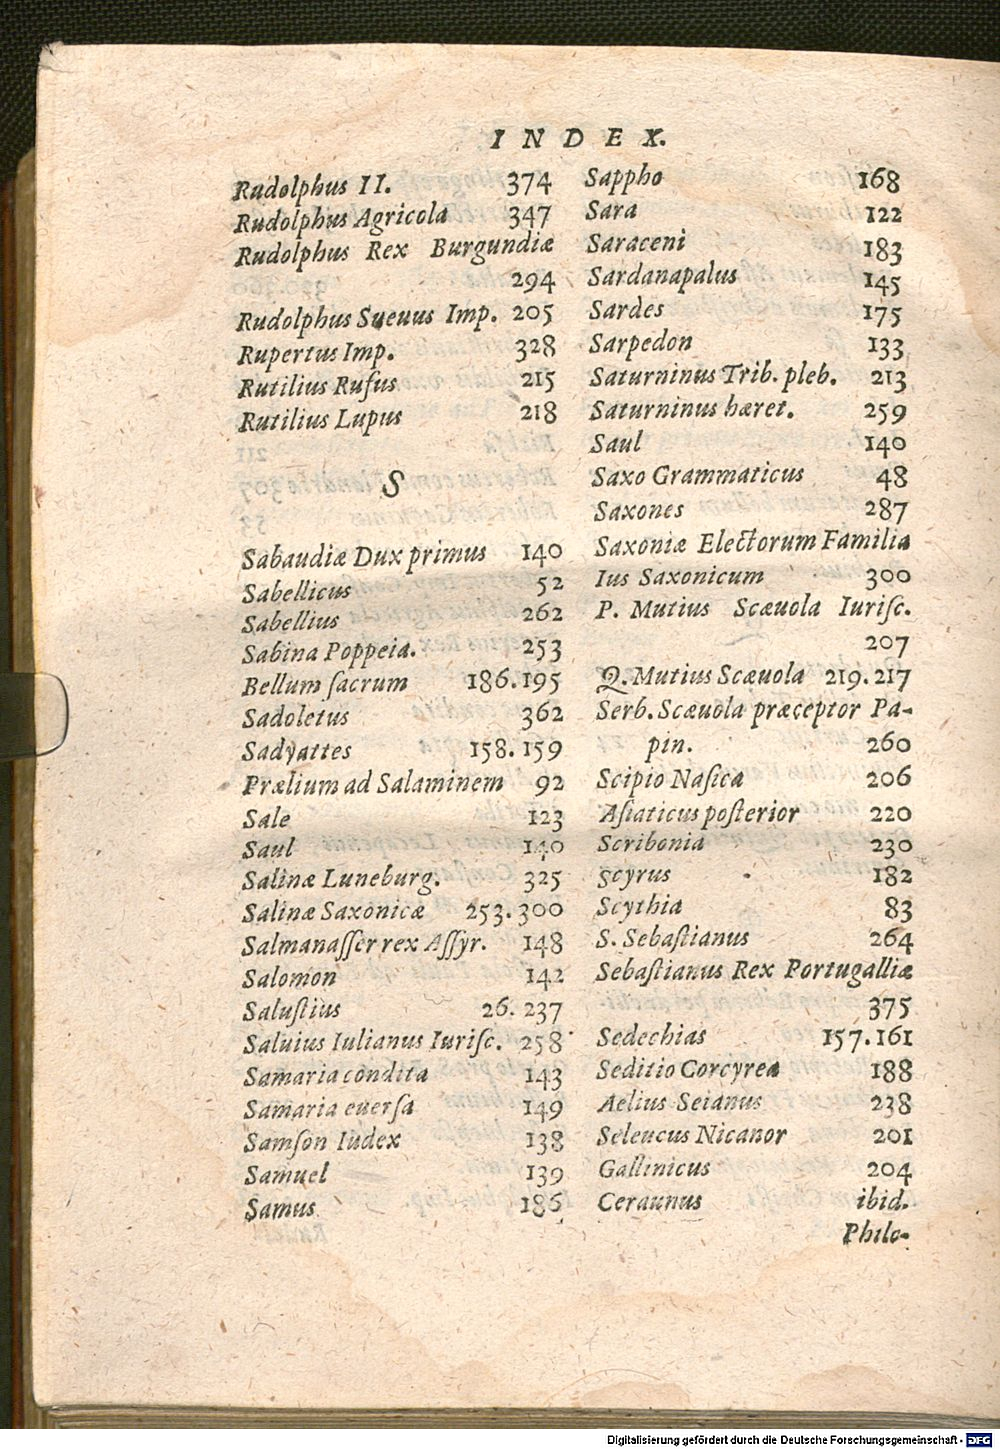 INDEX.
Rudolphus II. 374
Rudolphus Agricola 347
Rudolphus Rex Burgundiæ
294
Rudolphus Sueuus Imp. 205
Rupertus Imp. 328
Rutilius Rufus 215
Rutilius Lupus 218
S
Sabaudiæ Dux primus 140
Sabellicus 52
Sabellius 262
Sabina Poppeia. 253
Bellum ſacrum 186.195
Sadoletus 362
Sadyattes 158.159
Prælium ad Salaminem 92
Sale 123
Saul 140
Salinæ Luneburg. 325
Salinæ Saxonicæ 253.300
Salmanaſſer rex Aſſyr. 148
Salomon 142
Saluſtius 26.237
Saluius Iulianus Iuriſc. 258
Samaria condita 143
Samaria euerſa 149
Samſon Iudex 138
Samuel 139
Samus 186
Sappho 168
Sara 122
Saraceni 183
Sardanapalus 145
Sardes 175
Sarpedon 133
Saturninus Trib. pleb. 213
Saturninus hæret. 259
Saul 140
Saxo Grammaticus 48
Saxones 287
Saxoniæ Electorum Familia
Ius Saxonicum 300
P. Mutius Scæuola Iuriſc.
207
Q. Mutius Scæuola 219.217
Serb. Scæuola præceptor Pa-
pin. 260
Scipio Naſica 206
Aſiaticus poſterior 220
Scribonia 230
Scyrus 182
Scythia 83
S. Sebaſtianus 264
Sebaſtianus Rex Portugalliæ
375
Sedechias 157.161
Seditio Corcyrea 188
Aelius Seianus 238
Seleucus Nicanor 201
Gallinicus 204
Ceraunus ibid.
Philo-
Digitalisierung gefördert durch die Deutsche Forschungsgemeinschaft - DFG